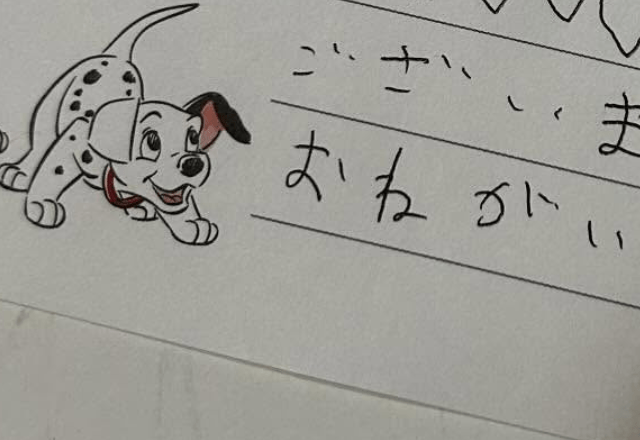 ございま
おねがい